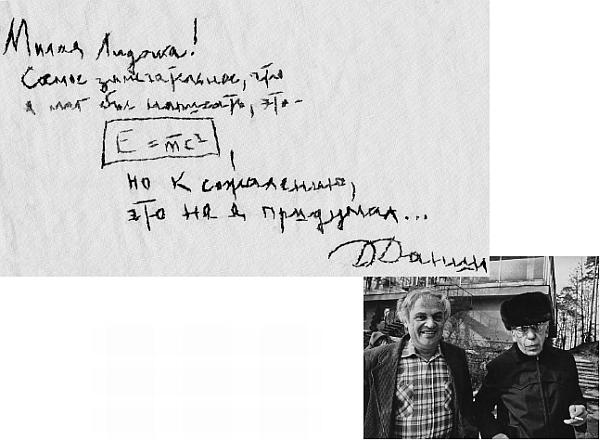 Милая Лидочка!
Самое замечательное, что
я мог бы написать, это –
E = mc²
но к сожалению,
это не я придумал...
Д Данин